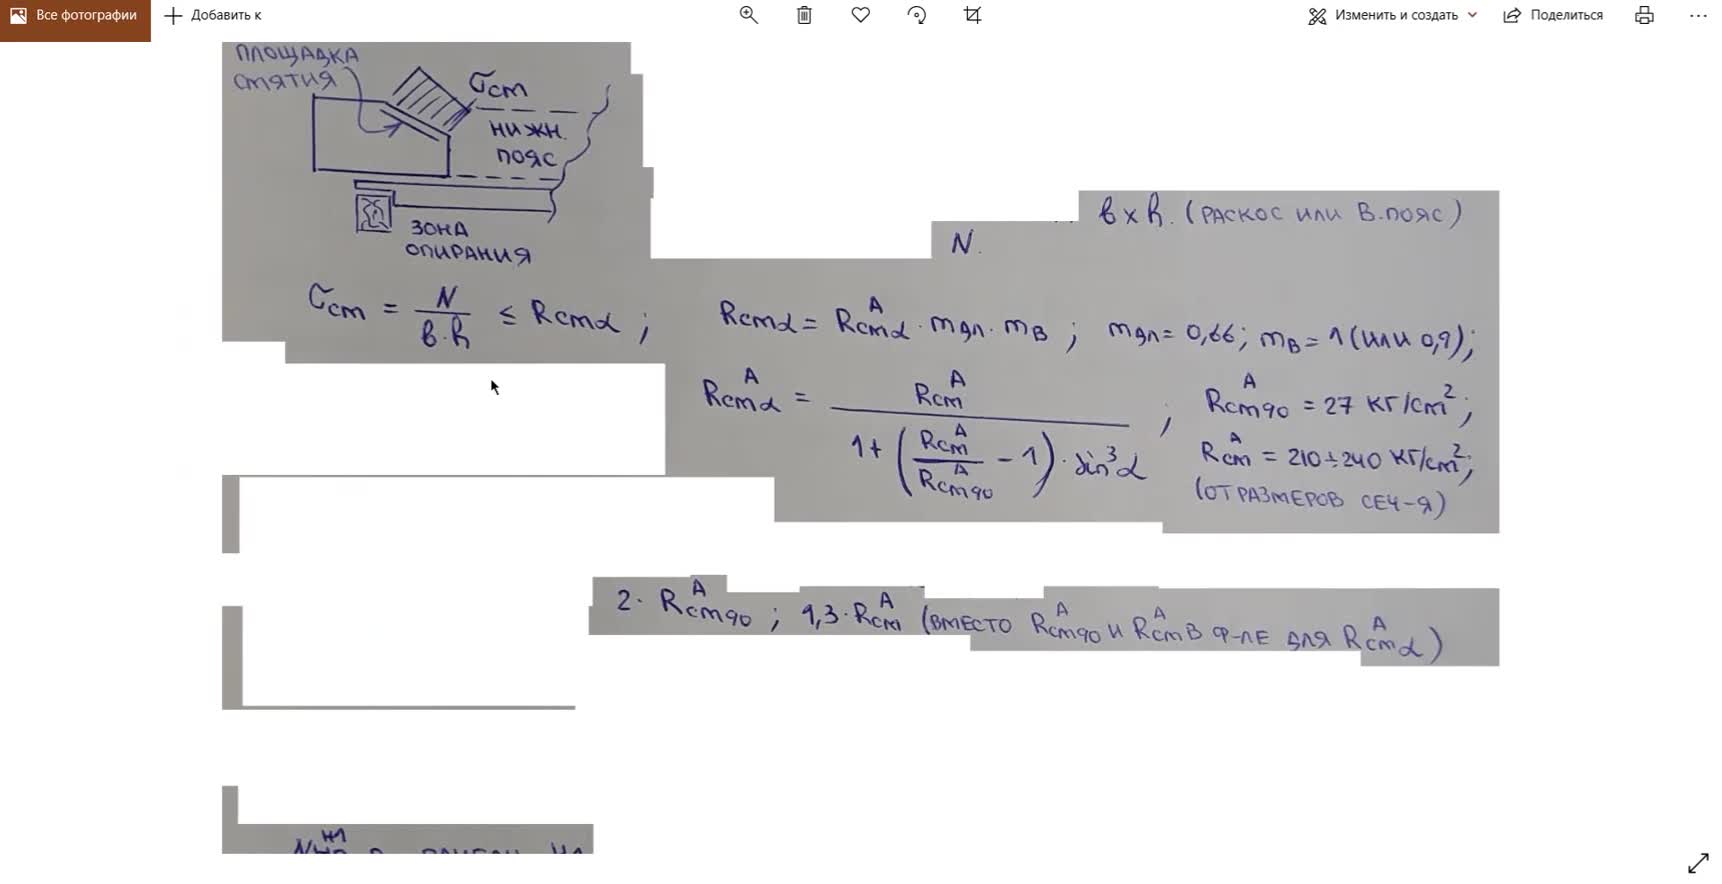 Все фотографии
Добавить к
Изменить и создать
Поделиться
ПЛОЩАДКА
СМЯТИЯ
σсm
НИЖН.
ПОЯС
ЗОНА
ОПИРАНИЯ
в x h. (РАСКОС ИЛИ В.ПОЯС)
N.
σсm = N / в·h ≤ Rсmα ;
Rсmα = Rсmα^A · mдл · mв ; mдл = 0,66 ; mв = 1 (ИЛИ 0,9) ;
Rсmα^A = Rсm^A / 1 + (Rсm^A / Rсm90^A − 1) · sin³α ;
Rсm90^A = 27 КГ/сm² ;
Rсm^A = 210 ÷ 240 КГ/сm² ;
(ОТ РАЗМЕРОВ СЕЧ-Я)
2 · Rсm90^A ; 1,3 · Rсm^A (ВМЕСТО Rсm90^A И Rсm^A В Ф-ЛЕ ДЛЯ Rсmα^A)